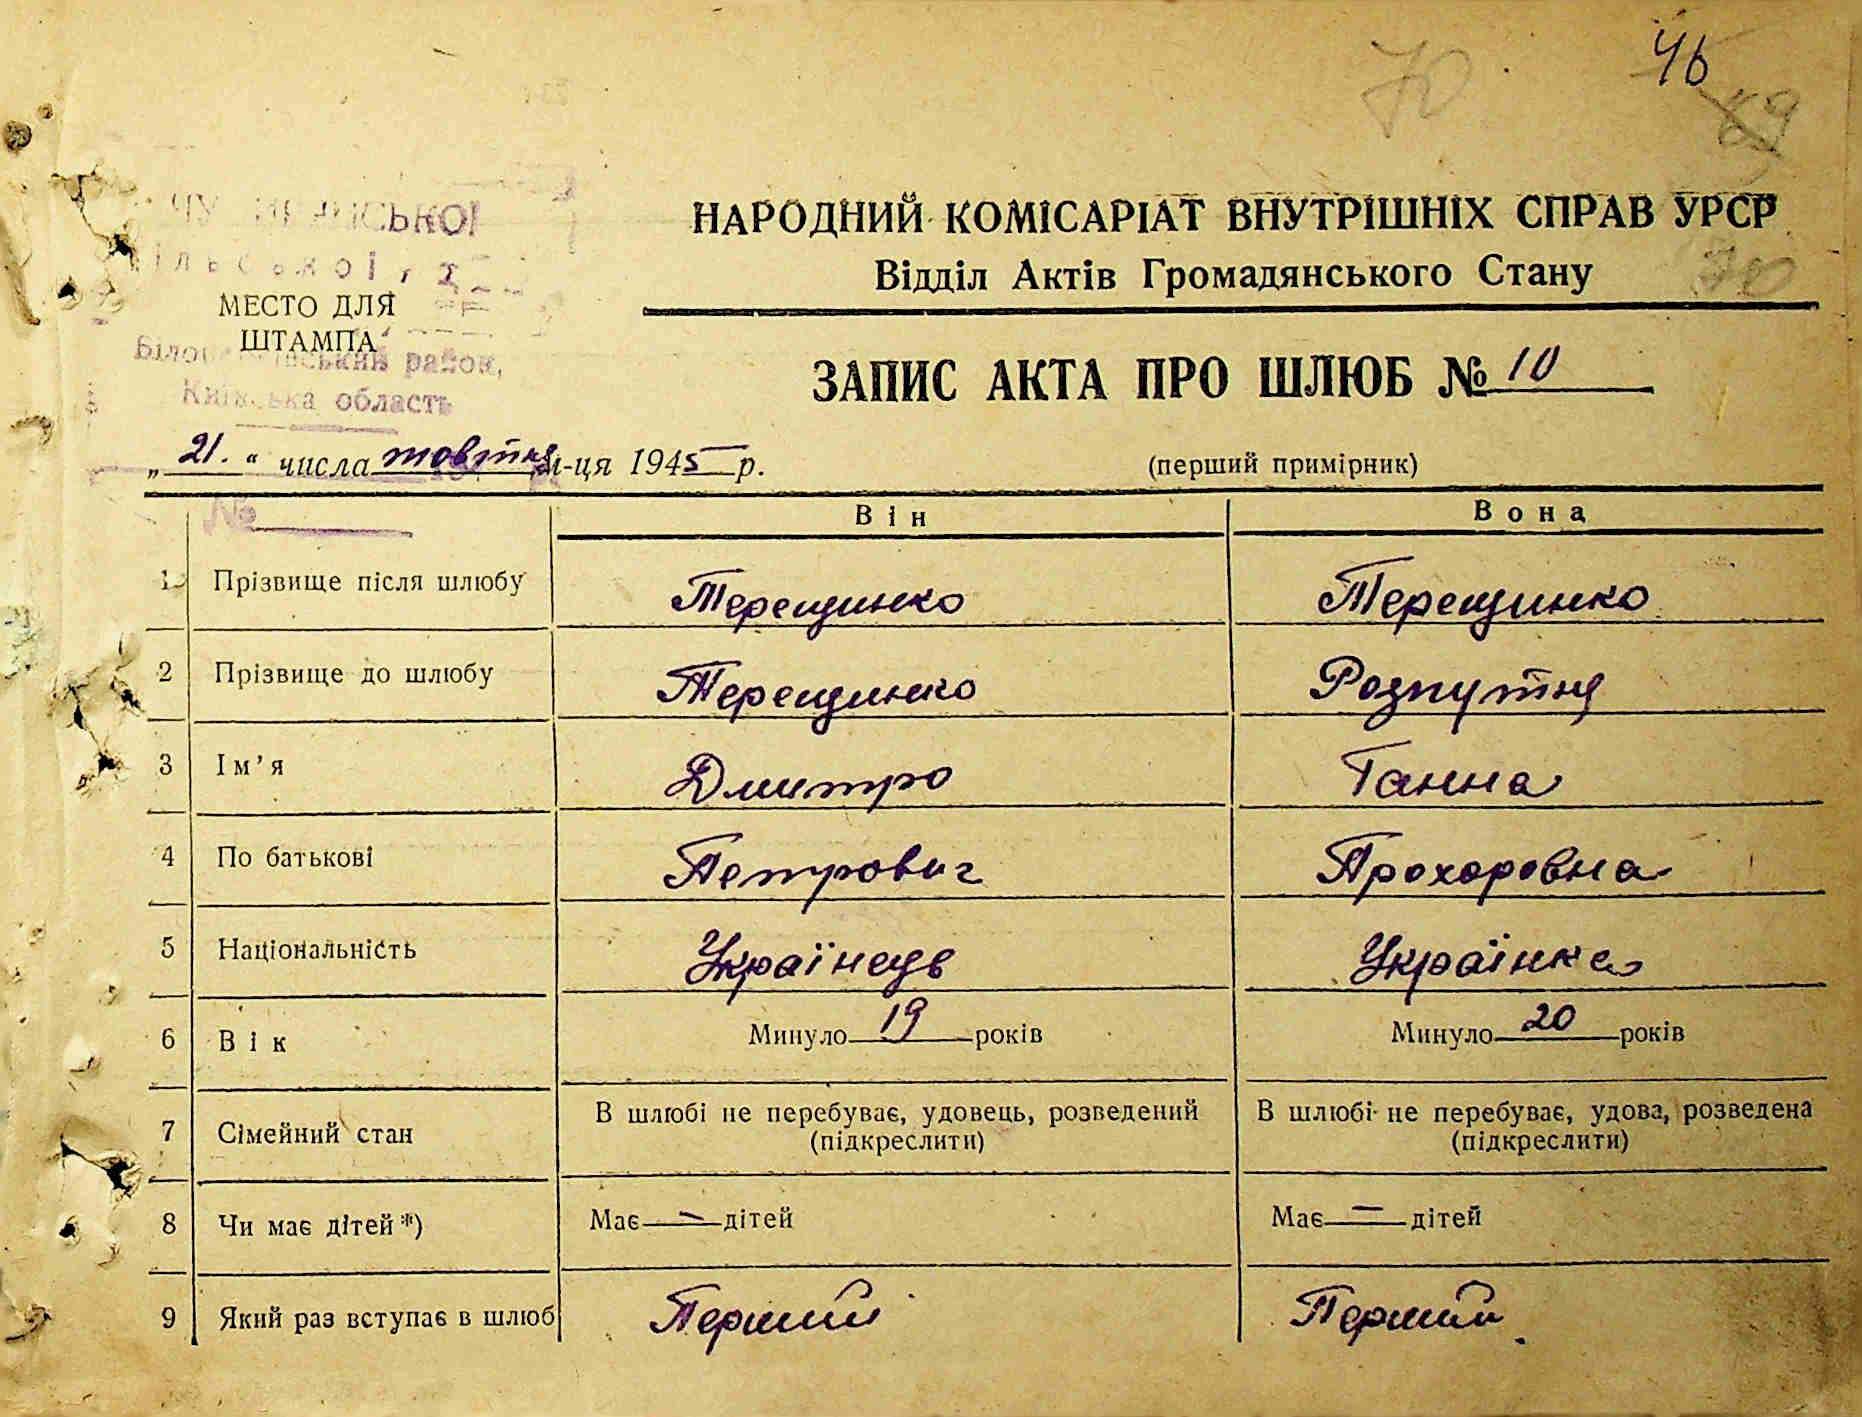 46
70
69
НАРОДНИЙ КОМІСАРІАТ ВНУТРІШНІХ СПРАВ УРСР
Відділ Актів Громадянського Стану
70
МЕСТО ДЛЯ
ШТАМПА
район,
Київська область
ЗАПИС АКТА ПРО ШЛЮБ № 10
„21.“ числа жовтня м-ця 1945 р.
(перший примірник)
№
Він Вона
1 Прізвище після шлюбу Терещинко Терещинко
2 Прізвище до шлюбу Терещинко Розпутня
3 Ім'я Дмитро Ганна
4 По батькові Петрович Прохоровна
5 Національність Українець Українка
6 Вік Минуло 19 років Минуло 20 років
7 Сімейний стан В шлюбі не перебуває, удовець, розведений (підкреслити) В шлюбі не перебуває, удова, розведена (підкреслити)
8 Чи має дітей*) Має — дітей Має — дітей
9 Який раз вступає в шлюб Перший Перший